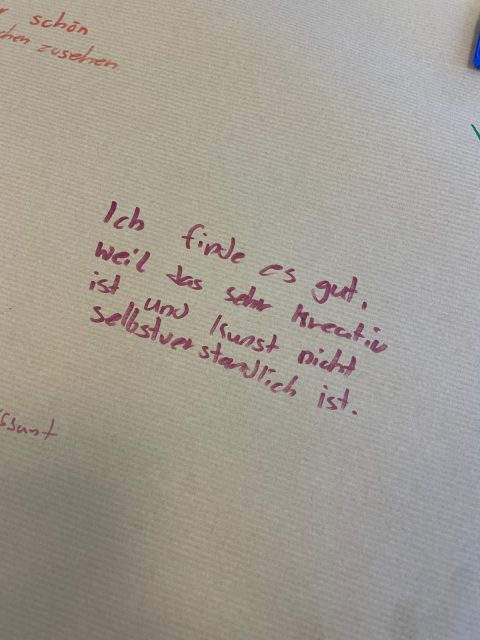 schön
zusehen
Ich finde es gut,
weil das sehr kreativ
ist und Kunst nicht
selbstverstandlich ist.